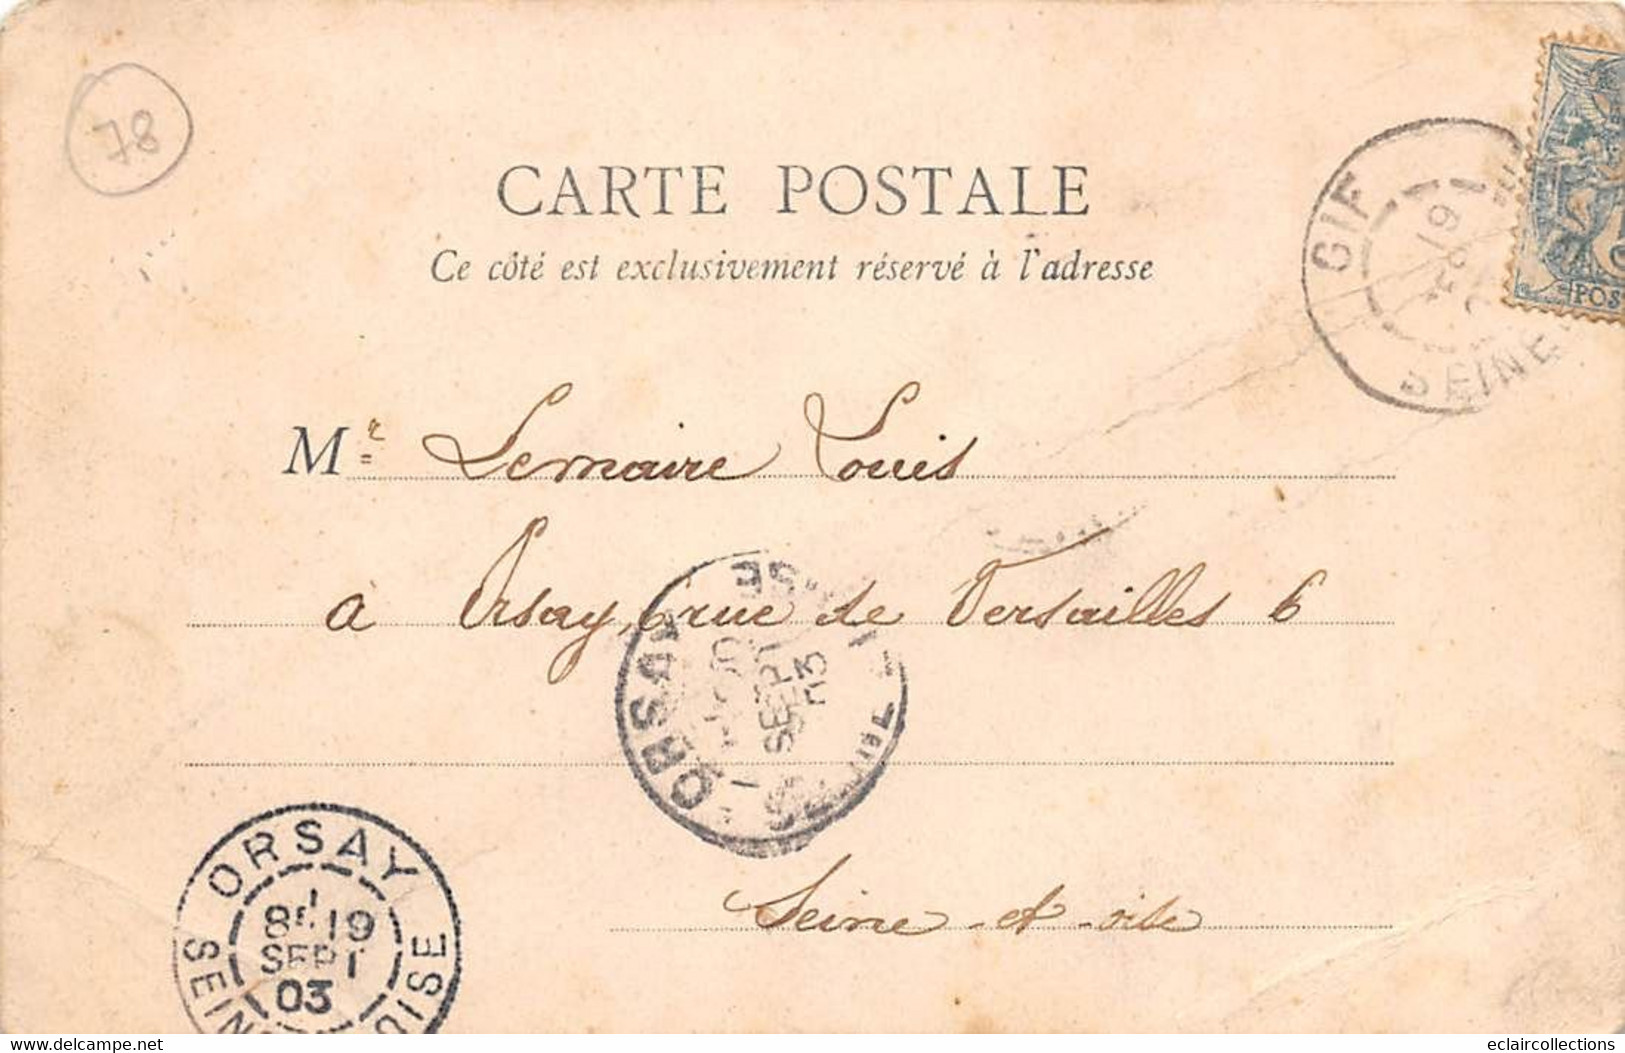 78
CARTE POSTALE
Ce côté est exclusivement réservé à l'adresse
GIF
19
SEINE
POS
Mr Lemaire Louis
a Orsay, rue de Versailles 6
ORSAY
SEPT
03
Seine-et-oise
ORSAY
8E 19
SEPT
03
SEIN
OISE
delcampe.net
eclaircollections